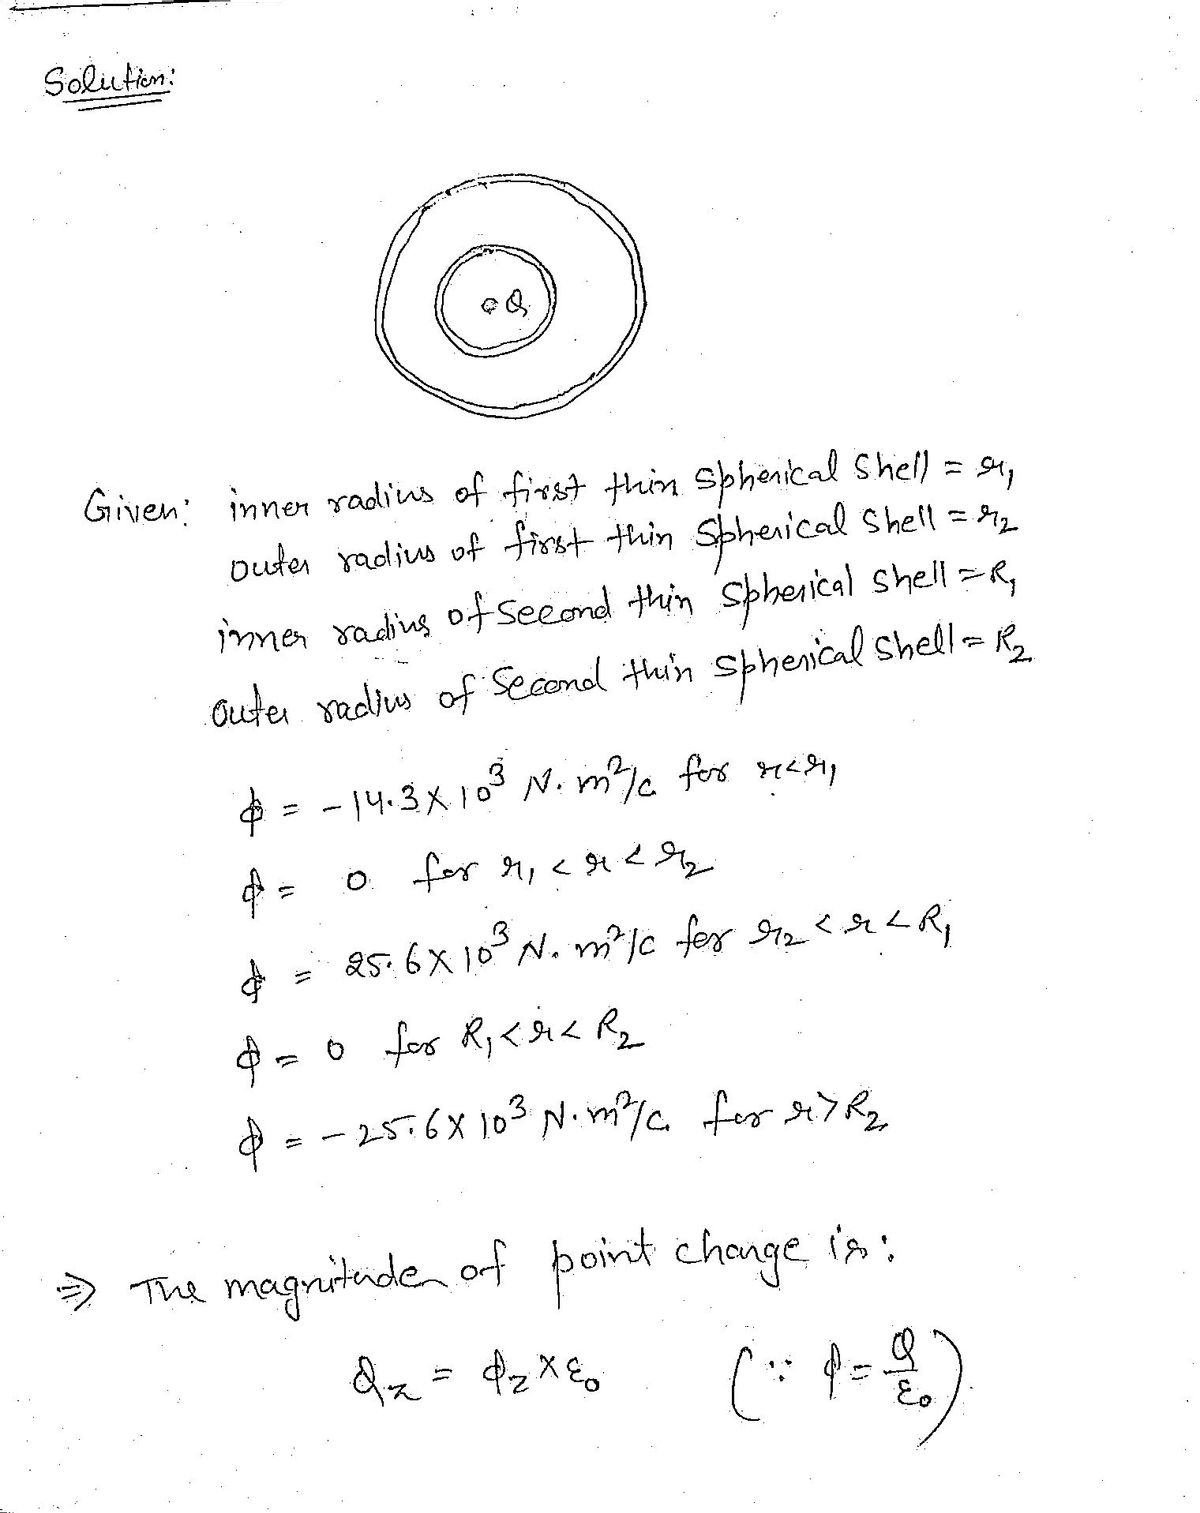 Solution:
Q
Given: inner radius of first thin spherical shell = r₁
outer radius of first thin spherical shell = r₂
inner radius of second thin spherical shell = R₁
outer radius of second thin spherical shell = R₂
ϕ = -14.3 × 10³ N. m²/c for r < r₁
ϕ = 0 for r₁ < r < r₂
ϕ = 25.6 × 10³ N. m²/c for r₂ < r < R₁
ϕ = 0 for R₁ < r < R₂
ϕ = -25.6 × 10³ N. m²/c for r > R₂
⇒ The magnitude of point charge is:
Q_z = ϕ_z × ε₀ (∵ ϕ = Q/ε₀)